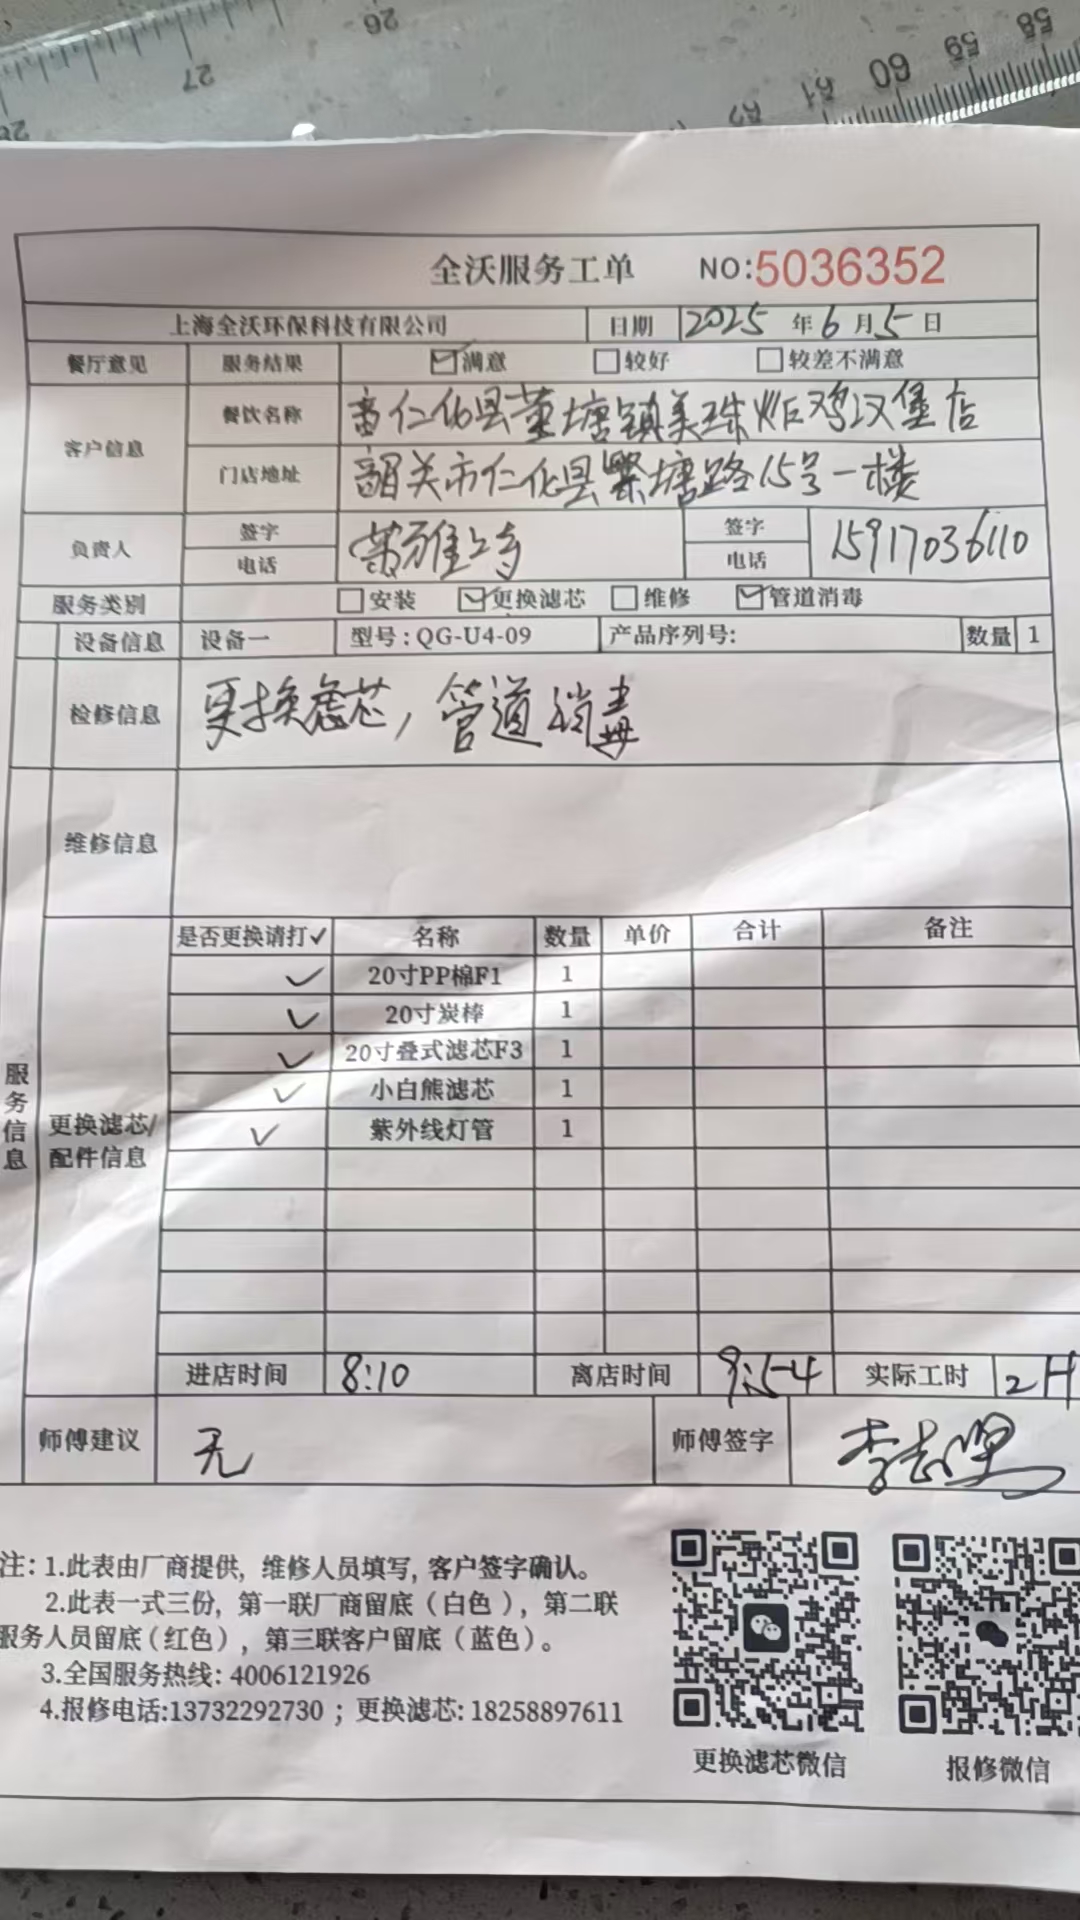 26
27
58
59
60
61
全沃服务工单 NO:5036352
上海全沃环保科技有限公司 日期 2025 年 6 月 5 日
餐厅意见 服务结果 ☑满意 □较好 □较差不满意
客户信息 餐饮名称 仁化县董塘镇美珠炸鸡汉堡店
门店地址 韶关市仁化县塘路15号一楼
负责人 签字 电话 签字 电话 15917036110
服务类别 □安装 ☑更换滤芯 □维修 ☑管道消毒
设备信息 设备一 型号:QG-U4-09 产品序列号: 数量 1
检修信息 更换滤芯,管道消毒
维修信息
服务信息
更换滤芯/配件信息
是否更换请打✓ 名称 数量 单价 合计 备注
✓ 20寸PP棉F1 1
✓ 20寸炭棒 1
✓ 20寸叠式滤芯F3 1
✓ 小白熊滤芯 1
✓ 紫外线灯管 1
进店时间 8:10 离店时间 9:54 实际工时 2H
师傅建议 无 师傅签字 李志坚
注: 1.此表由厂商提供, 维修人员填写, 客户签字确认。
2.此表一式三份, 第一联厂商留底(白色), 第二联
服务人员留底(红色), 第三联客户留底(蓝色)。
3.全国服务热线: 4006121926
4.报修电话:13732292730 ; 更换滤芯: 18258897611
更换滤芯微信 报修微信